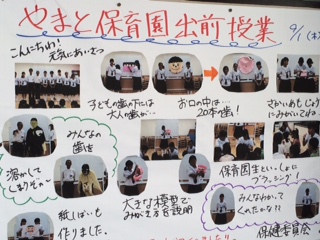 やまと保育園出前授業
9/1(木)
こんにちは!
元気にあいさつ
子どもの歯の下には
大人の歯が…
お口の中は…
20本の歯!
さかいめもじょうずに
みがいてね。
みんなの
歯を
溶かして
しまうぞ〜
紙しばいも
作りました。
大きな模型で
みがき方を説明
保育園生といっしょに
ブラッシング!
みんなわかって
くれたかな??
保健委員会